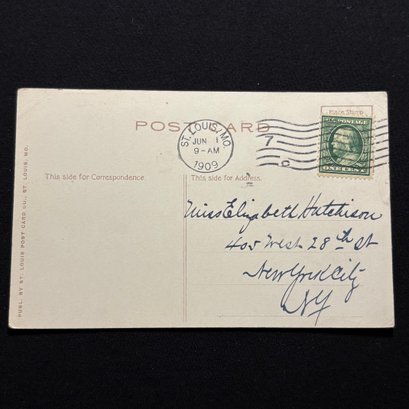 Place Stamp
POST CARD
ST. LOUIS, MO.
JUN 1
9-AM
1909
7
U.S. POSTAGE
ONE CENT
This side for Correspondence.
This side for Address.
Miss Elizabeth Hutchison
405 West 28th St
New York City
NY
PUBL. BY ST. LOUIS POST CARD CO., ST. LOUIS, MO.